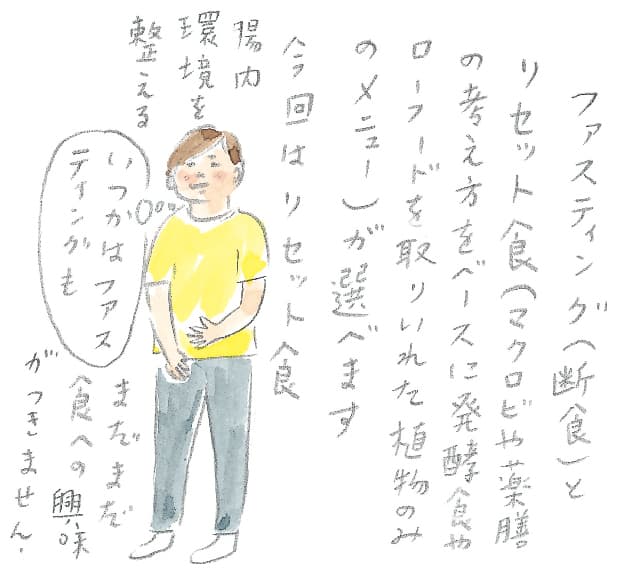 ファスティング(断食)と
リセット食(マクロビや薬膳
の考え方をベースに発酵食や
ローフードを取りいれた植物のみ
のメニュー)が選べます
今回はリセット食
腸内
環境を
整える
いつかはファス
ティングも
まだまだ
食への興味
がつきません.